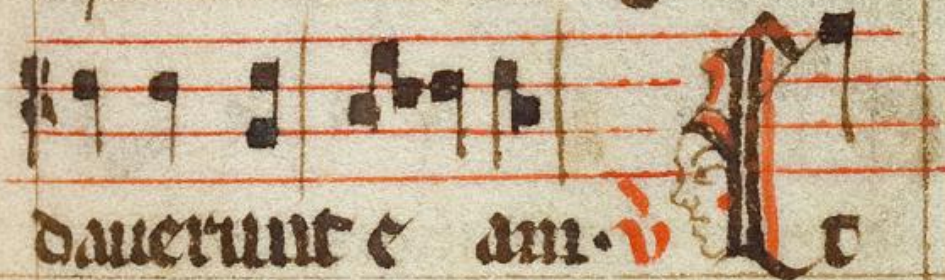 dauerunt e am. v̇ Et